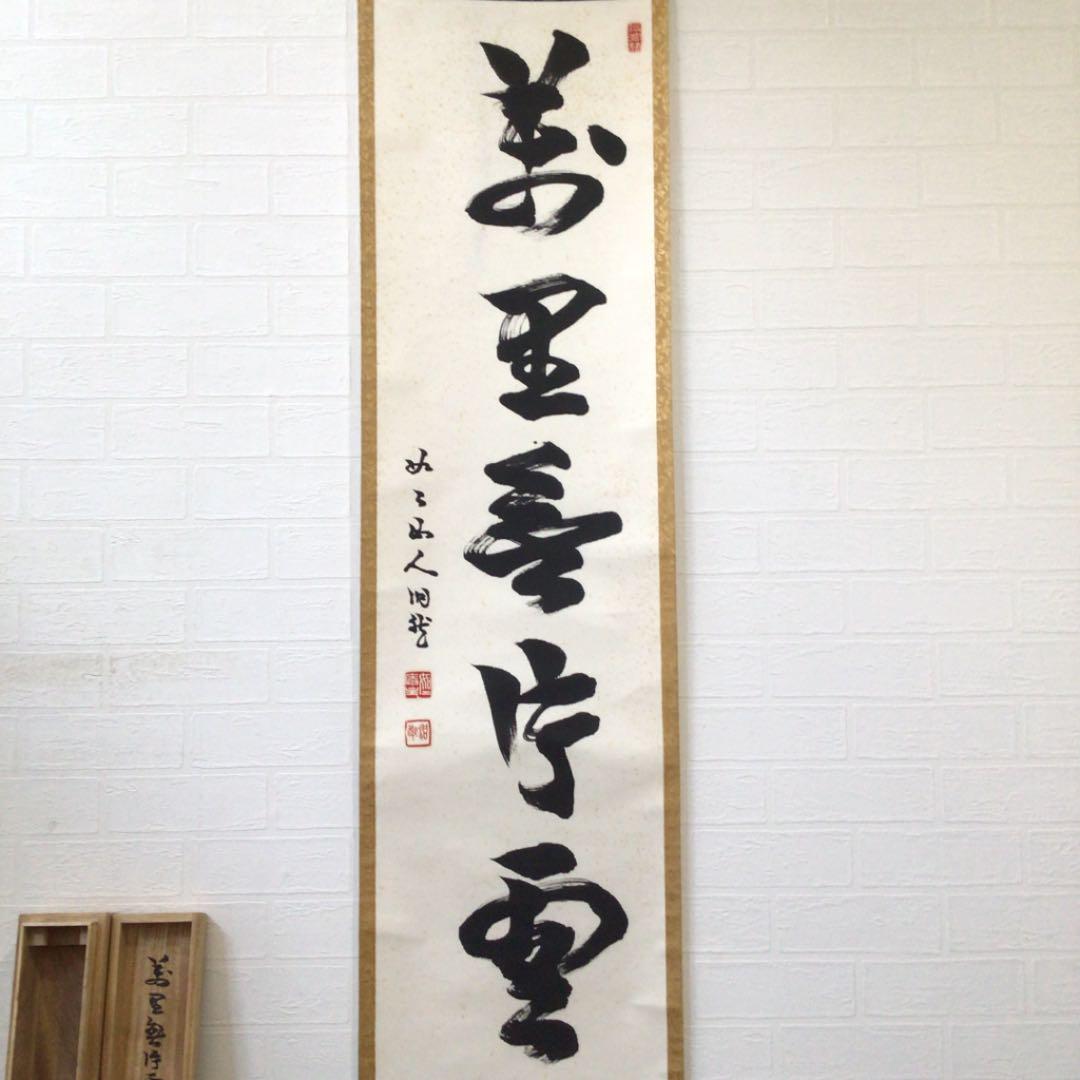 萬里無片雲
如々山人洞龍
萬里無片